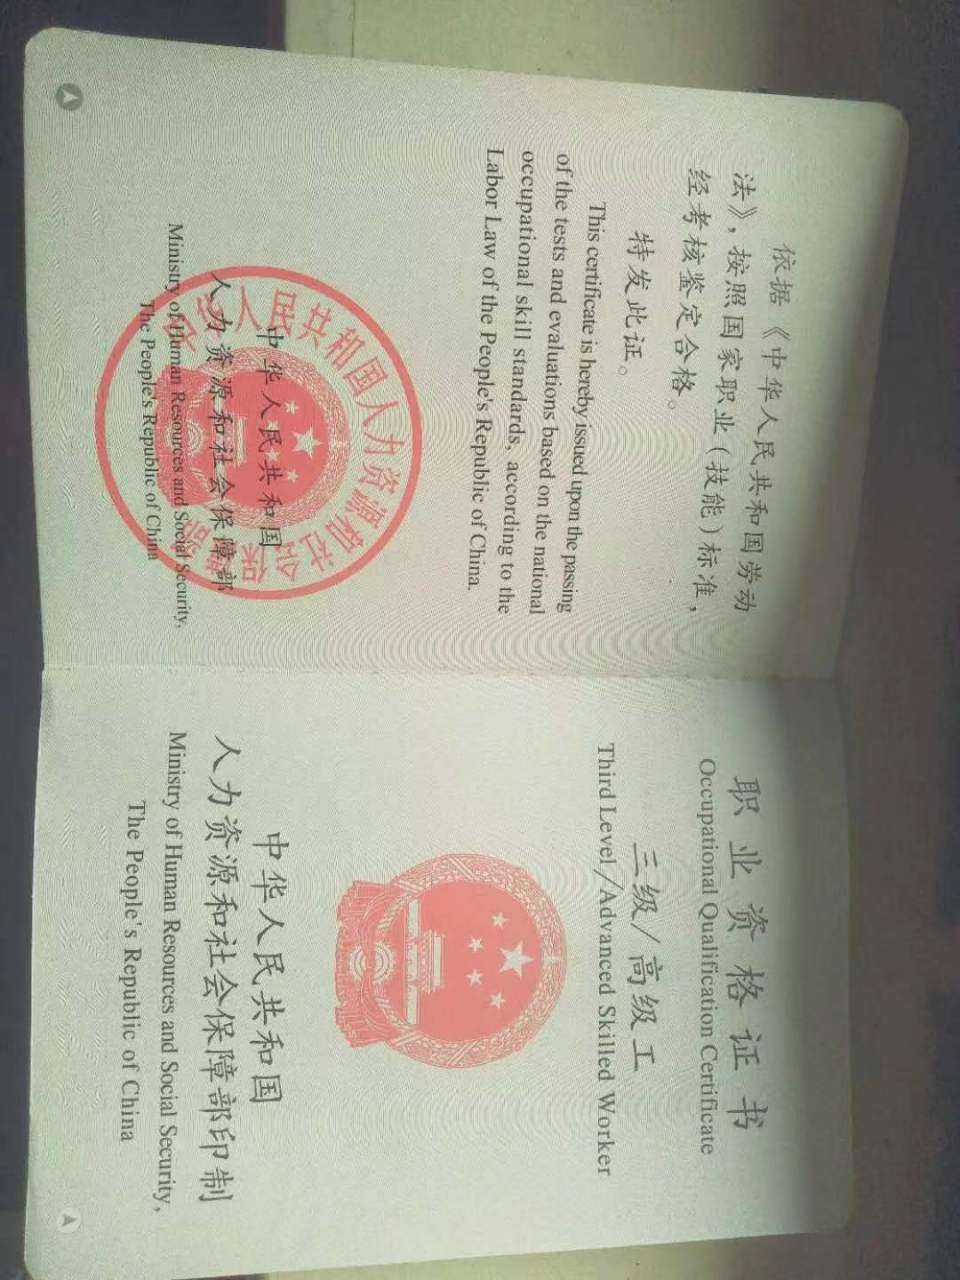 依据《中华人民共和国劳动
法》,按照国家职业(技能)标准,
经考核鉴定合格。
特发此证。
This certificate is hereby issued upon the passing
of the tests and evaluations based on the national
occupational skill standards, according to the
Labor Law of the People's Republic of China.
中华人民共和国
人力资源和社会保障部
Ministry of Human Resources and Social Security,
The People's Republic of China
中华人民共和国人力资源和社会保障部
职业资格证书
Occupational Qualification Certificate
三级/高级工
Third Level/Advanced Skilled Worker
中华人民共和国
人力资源和社会保障部印制
Ministry of Human Resources and Social Security,
The People's Republic of China